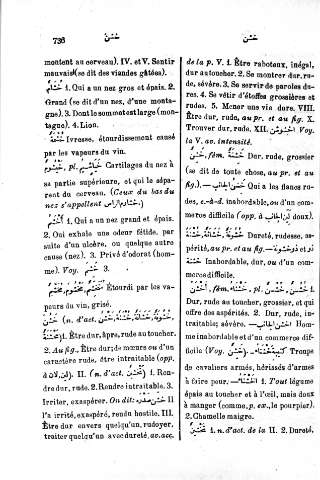 736
خشن
خشن
montent au cerveau). IV. et V. Sentir
mauvais (se dit des viandes gâtées).
1. Qui a un nez gros et épais. 2.
Grand (se dit d'un nez, d'une monta-
gne). 3. Dont le sommet est large (mon-
tagne). 4. Lion.
Ivresse, étourdissement causé
par les vapeurs du vin.
خيشوم, pl. خياشيم Cartilages du nez à
sa partie supérieure, et qui le sépa-
rent du cerveau. (Ceux du bas du
nez s'appellent
1. Qui a un nez grand et épais.
2. Qui exhale une odeur fétide, par
suite d'un ulcère, ou quelque autre
cause (nez). 3. Privé d'odorat (hom-
me). Voy. 3.
Étourdi par les va-
peurs du vin, grisé.
خشن (n. d'act.
1. Être dur, âpre, rude au toucher.
2. Au fig., Être dur de mœurs ou d'un
caractère rude, être intraitable (opp.
à لان). II. (n. d'act. تخشين) 1. Ren-
dre dur, rude. 2. Rendre intraitable. 3.
Irriter, exaspérer. On dit: II
l'a irrité, exaspéré, rendu hostile. III.
Être dur envers quelqu'un, rudoyer,
traiter quelqu'un avec dureté, av. acc.
de la p. V. 1. Être raboteux, inégal,
dur au toucher. 2. Se montrer dur, ru-
de, sévère. 3. Se servir de paroles du-
res. 4. Se vêtir d'étoffes grossières et
rudes. 5. Mener une vie dure. VIII.
Être dur, rude, au pr. et au fig. X.
Trouver dur, rude. XII. اخشوشن Voy.
la V. av. intensité.
خشن, fém. خشنة Dur, rude, grossier
(se dit de toute chose, au pr. et au
fig.). — خشن الجانب Qui a les flancs ru-
des, c.-à-d. inabordable, ou d'un com-
merce difficile (opp. à لين الجانب doux).
Dureté, rudesse, as-
périté, au pr. et au fig. —
Inabordable, dur, ou d'un com-
merce difficile.
اخشن, fém. خشناء, pl. 1.
Dur, rude au toucher, grossier, et qui
offre des aspérités. 2. Dur, rude, in-
traitable; sévère. — اخشن الجانب Hom-
me inabordable et d'un commerce dif-
ficile (Voy. خشن). — كتيبة خشناء Troupe
de cavaliers armés, hérissés d'armes
à faire peur. — خشناء 1. Tout légume
épais au toucher et à l'œil, mais doux
à manger (comme, p. ex., le pourpier).
2. Chamelle maigre.
تخشين 1. n. d'act. de la II. 2. Dureté,